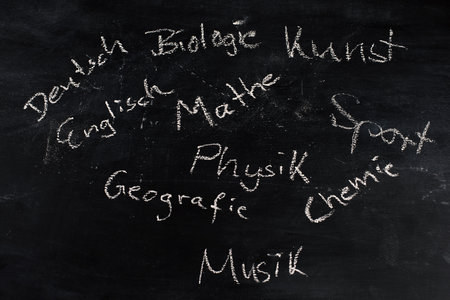 Deutsch Biologie Kunst
Englisch Mathe Sport
Physik
Geografie Chemie
Musik